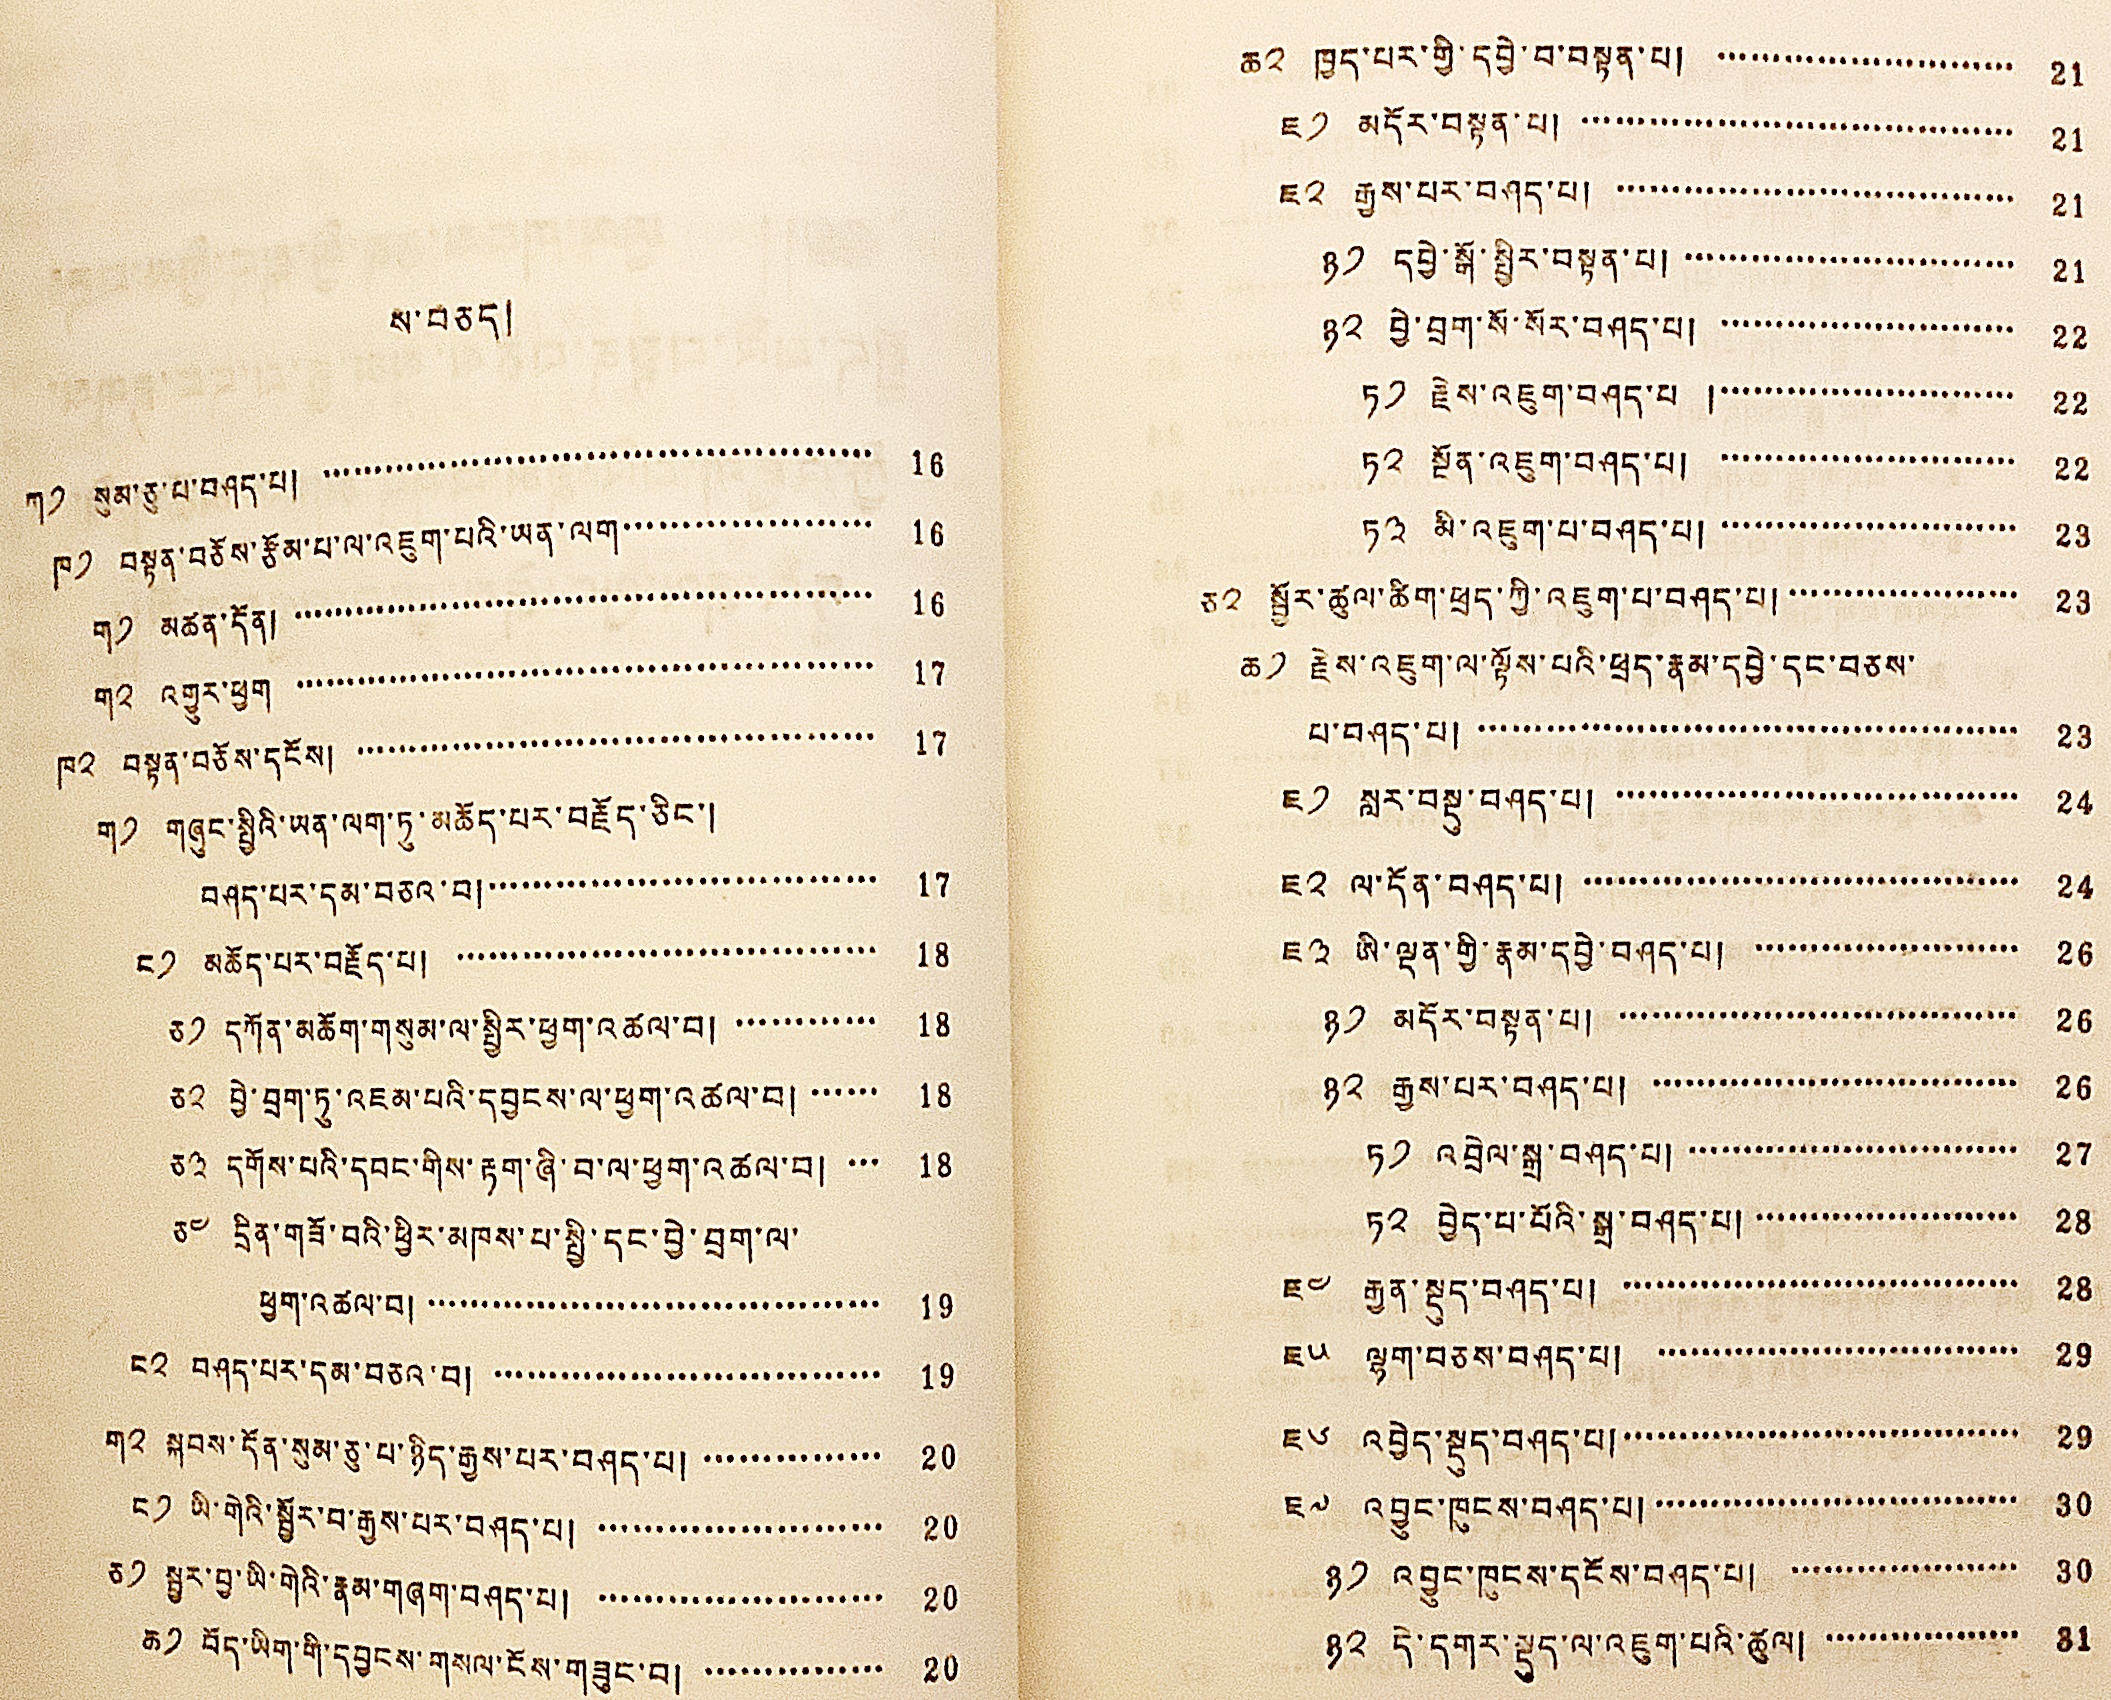 ས་བཅད།
ཀ༡ སུམ་ཅུ་པ་བཤད་པ། 16
ཁ༡ བསྟན་བཅོས་རྩོམ་པ་ལ་འཇུག་པའི་ཡན་ལག 16
ག༡ མཚན་དོན། 16
ག༢ འགྱུར་ཕྱག 17
ཁ༢ བསྟན་བཅོས་དངོས། 17
ག༡ གཞུང་སྤྱིའི་ཡན་ལག་ཏུ་མཆོད་པར་བརྗོད་ཅིང་།
བཤད་པར་དམ་བཅའ་བ། 17
ང༡ མཆོད་པར་བརྗོད་པ། 18
ཅ༡ དཀོན་མཆོག་གསུམ་ལ་སྤྱིར་ཕྱག་འཚལ་བ། 18
ཅ༢ བྱེ་བྲག་ཏུ་འཇམ་པའི་དབྱངས་ལ་ཕྱག་འཚལ་བ། 18
ཅ༣ དགོས་པའི་དབང་གིས་རྟག་ཞི་བ་ལ་ཕྱག་འཚལ་བ། 18
ཅ༤ དྲིན་གཟོ་བའི་ཕྱིར་མཁས་པ་སྤྱི་དང་བྱེ་བྲག་ལ་
ཕྱག་འཚལ་བ། 19
ང༢ བཤད་པར་དམ་བཅའ་བ། 19
ག༢ སྐབས་དོན་སུམ་ཅུ་པ་ཉིད་རྒྱས་པར་བཤད་པ། 20
ང༡ ཡི་གེའི་སྦྱོར་བ་རྒྱས་པར་བཤད་པ། 20
ཅ༡ སྦྱར་བྱ་ཡི་གེའི་རྣམ་གཞག་བཤད་པ། 20
ཆ༡ བོད་ཡིག་གི་དབྱངས་གསལ་ངོས་གཟུང་བ། 20
ཆ༢ ཁྱད་པར་གྱི་དབྱེ་བ་བསྟན་པ། 21
ཇ༡ མདོར་བསྟན་པ། 21
ཇ༢ རྒྱས་པར་བཤད་པ། 21
ཉ༡ དབྱེ་སྒོ་སྤྱིར་བསྟན་པ། 21
ཉ༢ བྱེ་བྲག་སོ་སོར་བཤད་པ། 22
ཏ༡ རྗེས་འཇུག་བཤད་པ ། 22
ཏ༢ སྔོན་འཇུག་བཤད་པ། 22
ཏ༣ མི་འཇུག་པ་བཤད་པ། 23
ཅ༢ སྦྱོར་ཚུལ་ཚིག་ཕྲད་ཀྱི་འཇུག་པ་བཤད་པ། 23
ཆ༡ རྗེས་འཇུག་ལ་ལྟོས་པའི་ཕྲད་རྣམ་དབྱེ་དང་བཅས་
པ་བཤད་པ། 23
ཇ༡ སླར་བསྡུ་བཤད་པ། 24
ཇ༢ ལ་དོན་བཤད་པ། 24
ཇ༣ ཨི་ལྡན་གྱི་རྣམ་དབྱེ་བཤད་པ། 26
ཉ༡ མདོར་བསྟན་པ། 26
ཉ༢ རྒྱས་པར་བཤད་པ། 26
ཏ༡ འབྲེལ་སྒྲ་བཤད་པ། 27
ཏ༢ བྱེད་པ་པོའི་སྒྲ་བཤད་པ། 28
ཇ༤ རྒྱན་སྡུད་བཤད་པ། 28
ཇ༥ ལྷག་བཅས་བཤད་པ། 29
ཇ༦ འབྱེད་སྡུད་བཤད་པ། 29
ཇ༧ འབྱུང་ཁུངས་བཤད་པ། 30
ཉ༡ འབྱུང་ཁུངས་དངོས་བཤད་པ། 30
ཉ༢ དེ་དགར་སྡུད་ལ་འཇུག་པའི་ཚུལ། 31